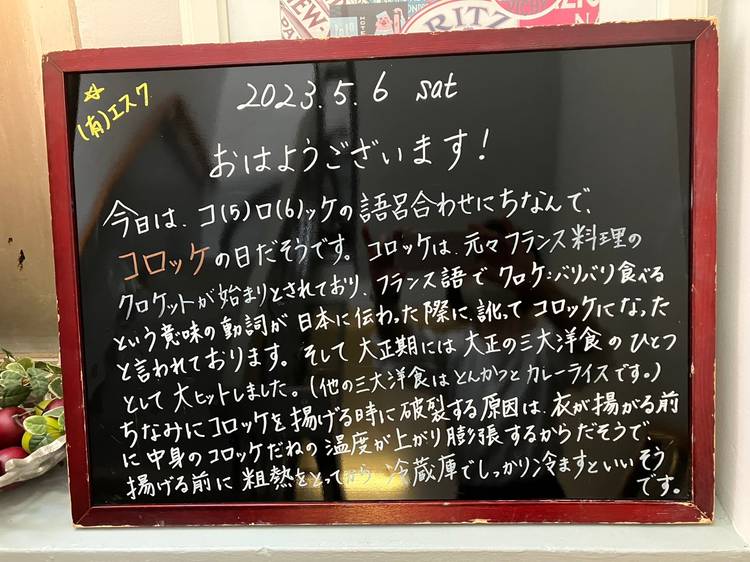 RITZ
☆
(有)エスク
2023.5.6 sat
おはようございます!
今日は、コ(5)ロ(6)ッケの語呂合わせにちなんで、
コロッケの日だそうです。コロッケは、元々フランス料理の
クロケットが始まりとされており、フランス語でクロケ:バリバリ食べる
という意味の動詞が日本に伝わった際に、訛ってコロッケになった
と言われております。そして大正期には大正の三大洋食のひとつ
として大ヒットしました。(他の三大洋食はとんかつとカレーライスです。)
ちなみにコロッケを揚げる時に破裂する原因は、衣が揚がる前
に中身のコロッケだねの温度が上がり膨張するからだそうで、
揚げる前に粗熱をとってから冷蔵庫でしっかり冷ますといいそう
です。